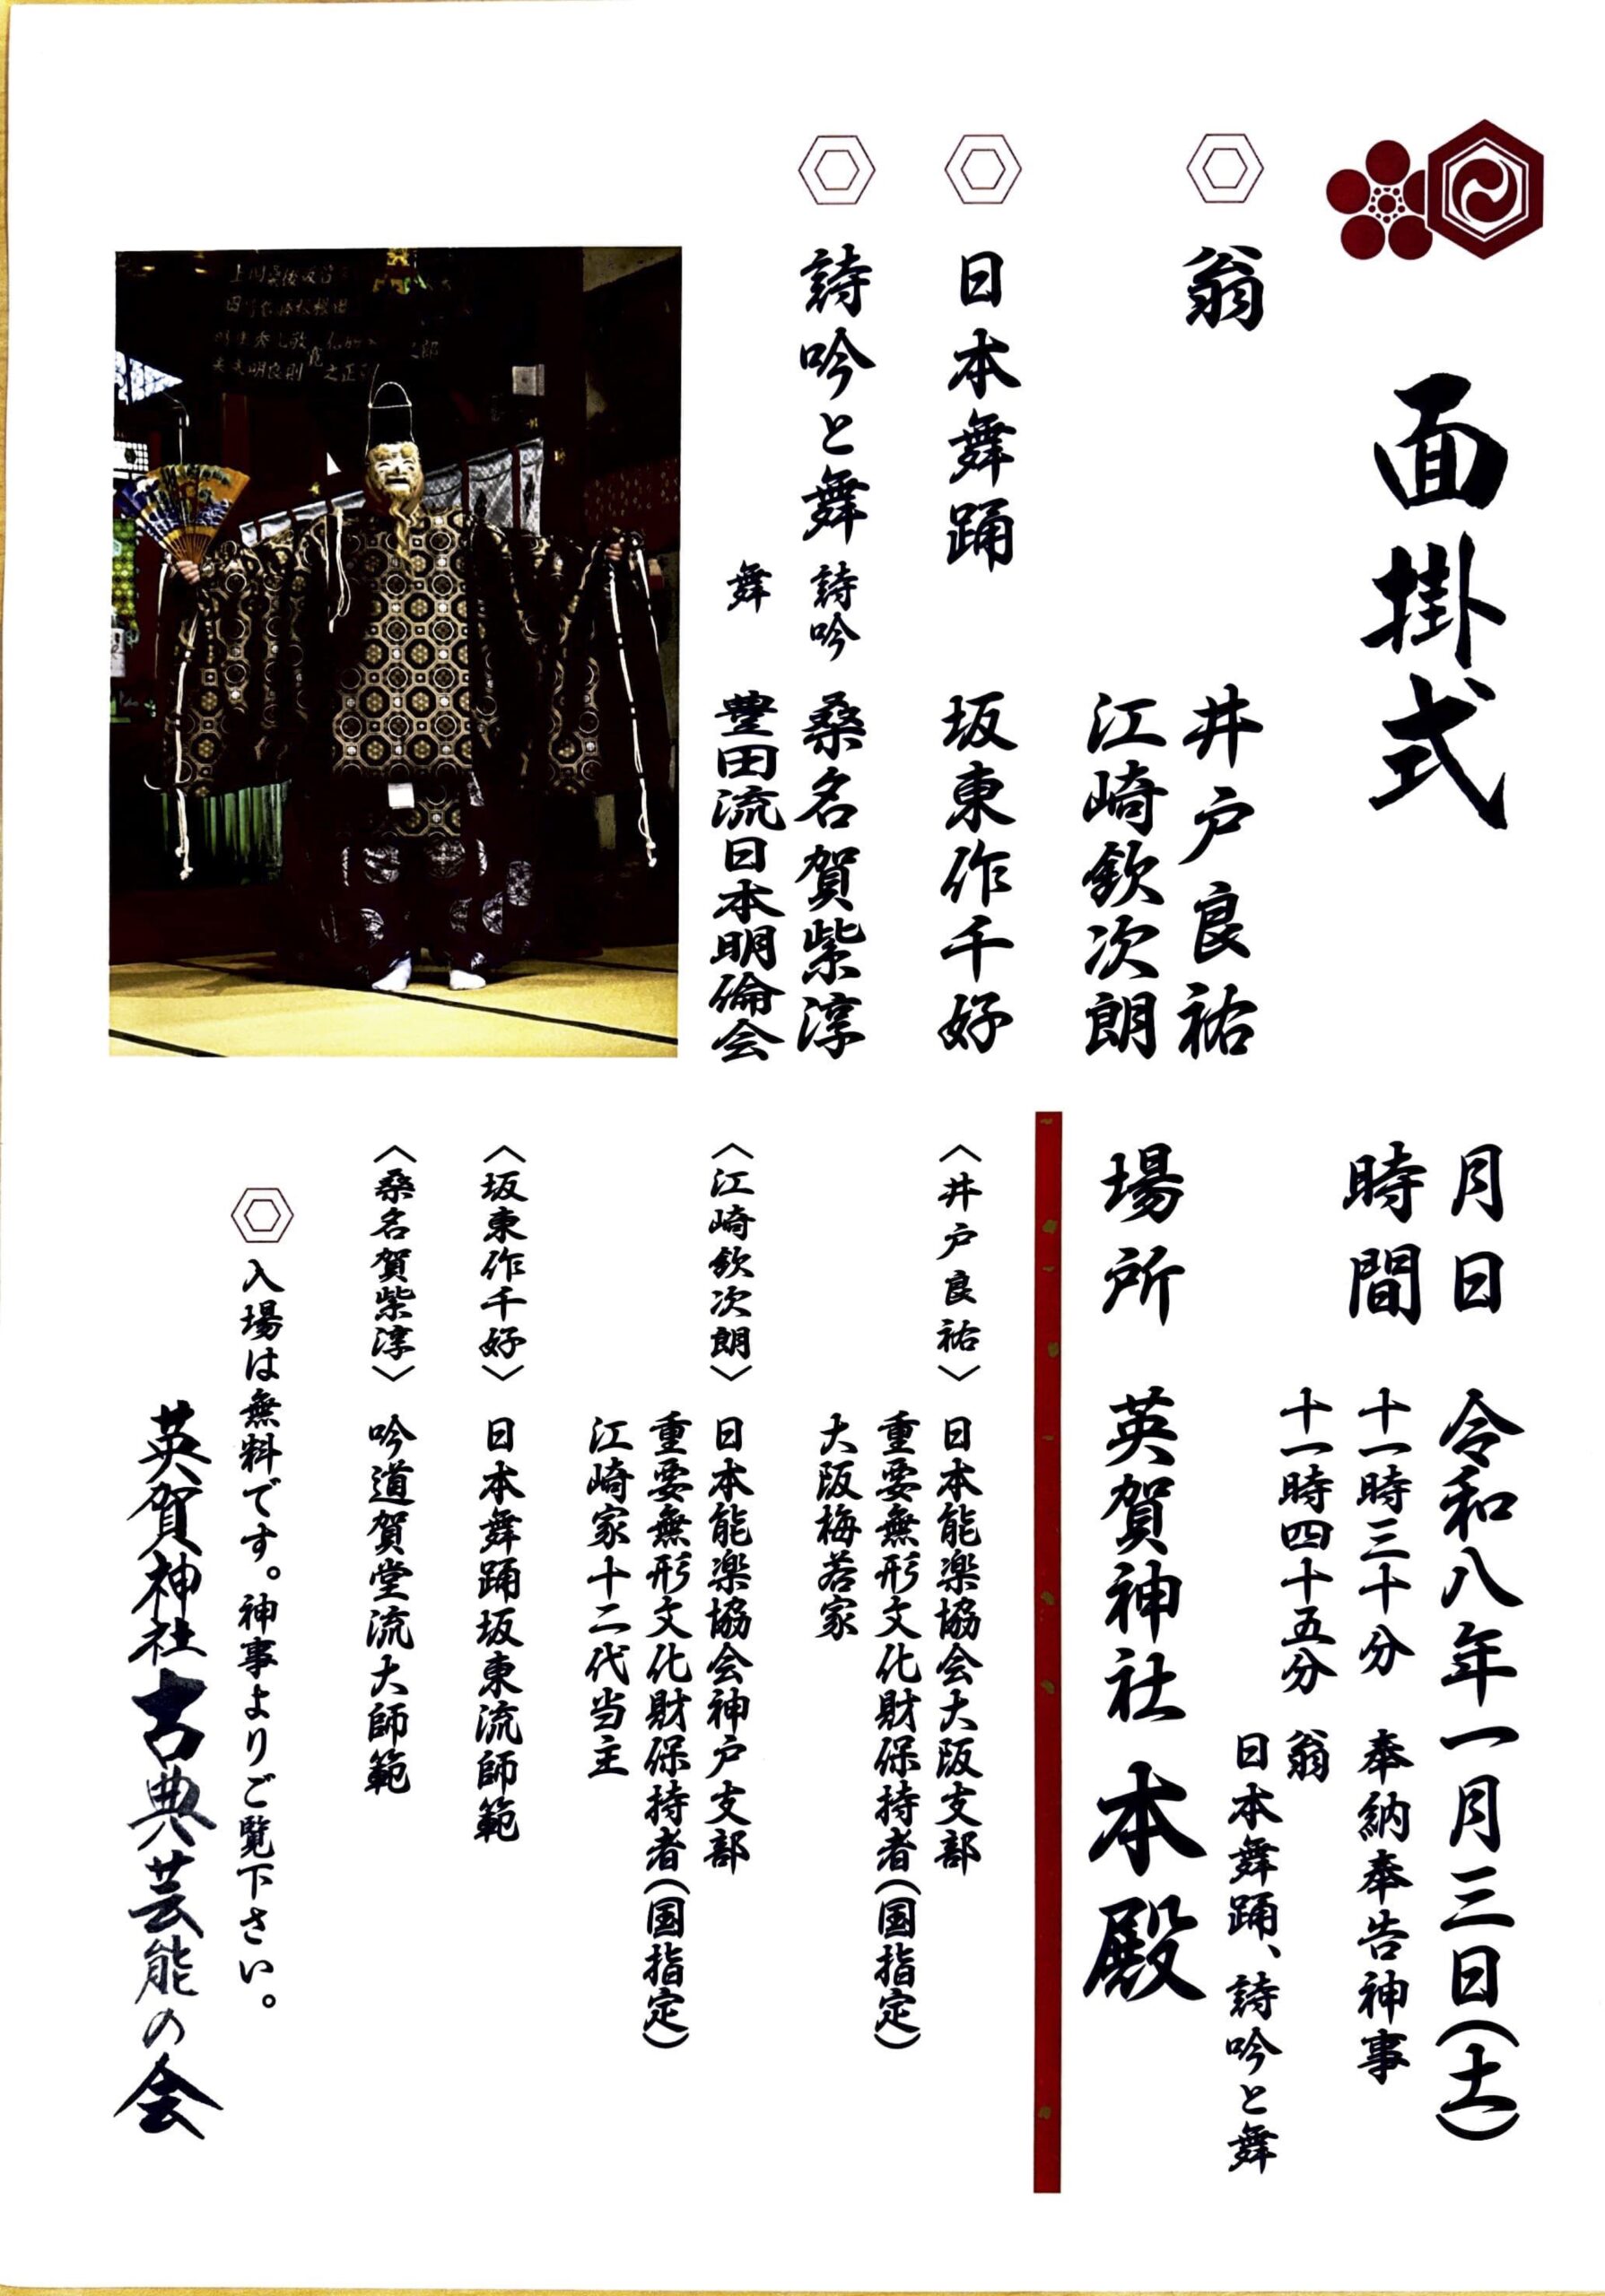 面掛式
翁
井戸良祐
江崎欽次朗
日本舞踊
坂東作千好
詩吟と舞
詩吟
桑名賀紫淳
舞
豊田流日本明倫会
月日
令和八年一月三日(土)
時間
十一時三十分
奉納奉告神事
十一時四十五分
翁
日本舞踊、詩吟と舞
場所
英賀神社 本殿
〈井戸良祐〉
日本能楽協会大阪支部
重要無形文化財保持者(国指定)
大阪梅若家
〈江崎欽次朗〉
日本能楽協会神戸支部
重要無形文化財保持者(国指定)
江崎家十二代当主
〈坂東作千好〉
日本舞踊坂東流師範
〈桑名賀紫淳〉
吟道賀堂流大師範
入場は無料です。神事よりご覧下さい。
英賀神社古典芸能の会